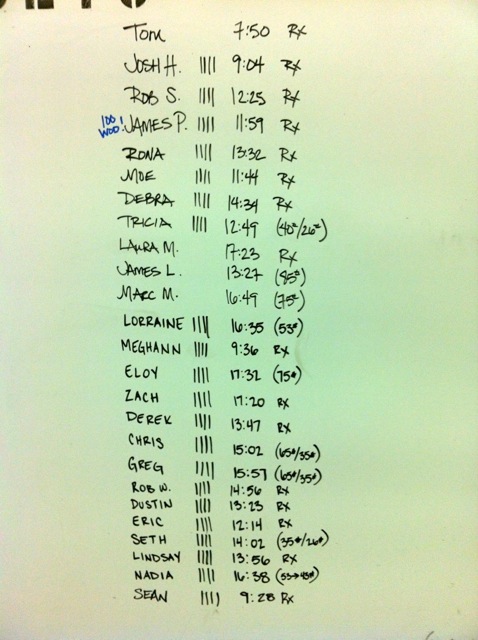 Tom 7:50 Rx
JOSH H. |||| 9:04 Rx
ROB S. |||| 12:25 Rx
100! WOD! JAMES P. |||| 11:59 Rx
RONA |||| 13:32 Rx
MOE |||| 11:44 Rx
DEBRA |||| 14:34 Rx
TRICIA |||| 12:49 (40#/26#)
LAURA M. 17:23 Rx
JAMES L. 13:27 (85#)
MARC M. 16:49 (75#)
LORRAINE |||| 16:35 (53#)
MEGHANN |||| 9:36 Rx
ELOY |||| 17:32 (75#)
ZACH |||| 17:20 Rx
DEREK |||| 13:47 Rx
CHRIS |||| 15:02 (65#/35#)
GREG |||| 15:57 (65#/35#)
ROB W. |||| 14:56 Rx
DUSTIN |||| 13:23 Rx
ERIC |||| 12:14 Rx
SETH |||| 14:02 (35#/26#)
LINDSAY |||| 13:56 Rx
NADIA |||| 16:38 (53→45#)
SEAN |||| 9:28 Rx